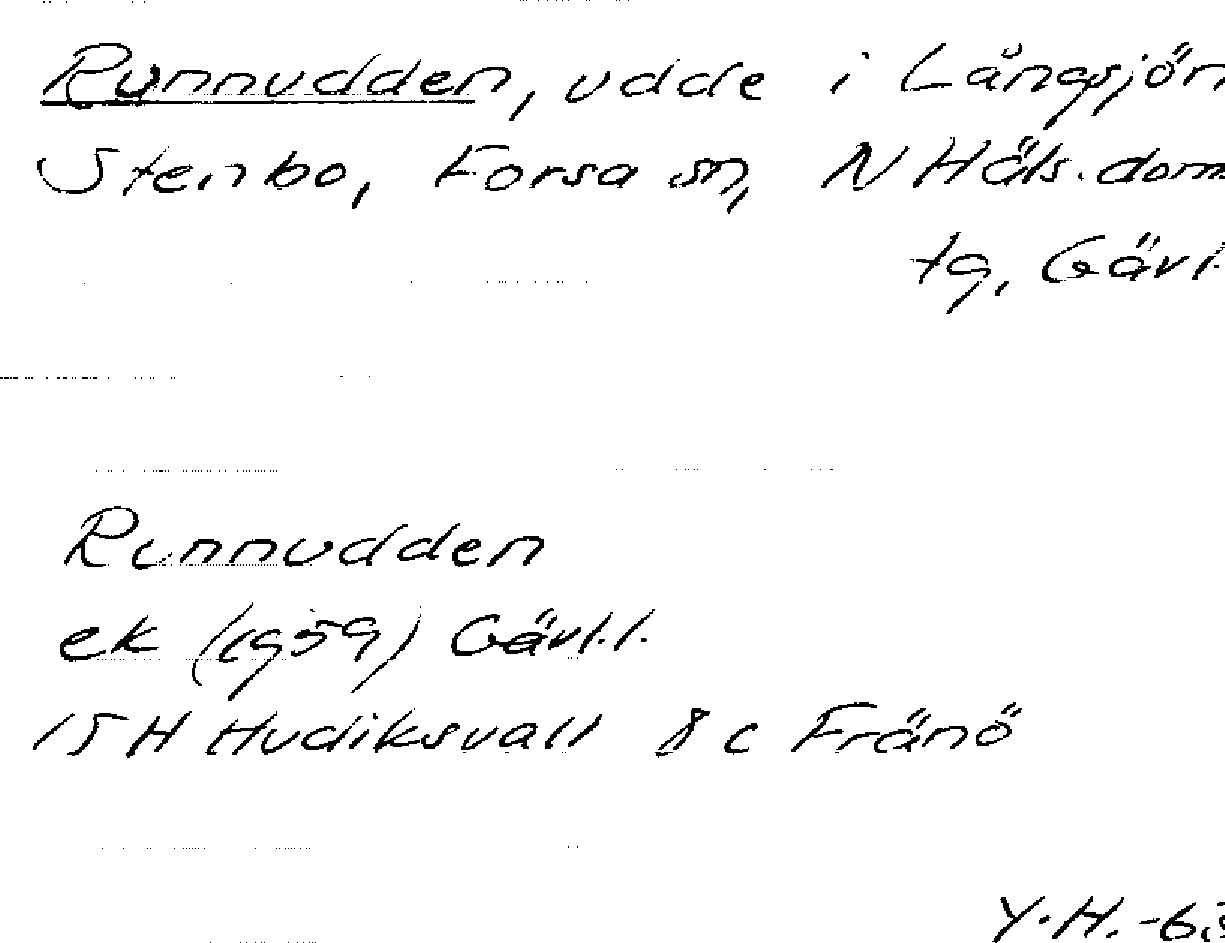 Runnudden, udde i Långsjön
Stenbo, Forsa sn, N Häls. dom
tg, Gävl.
Runnudden
ek (1959) Gävl.l.
15 H Hudiksvall 8 c Fränö
Y.H.